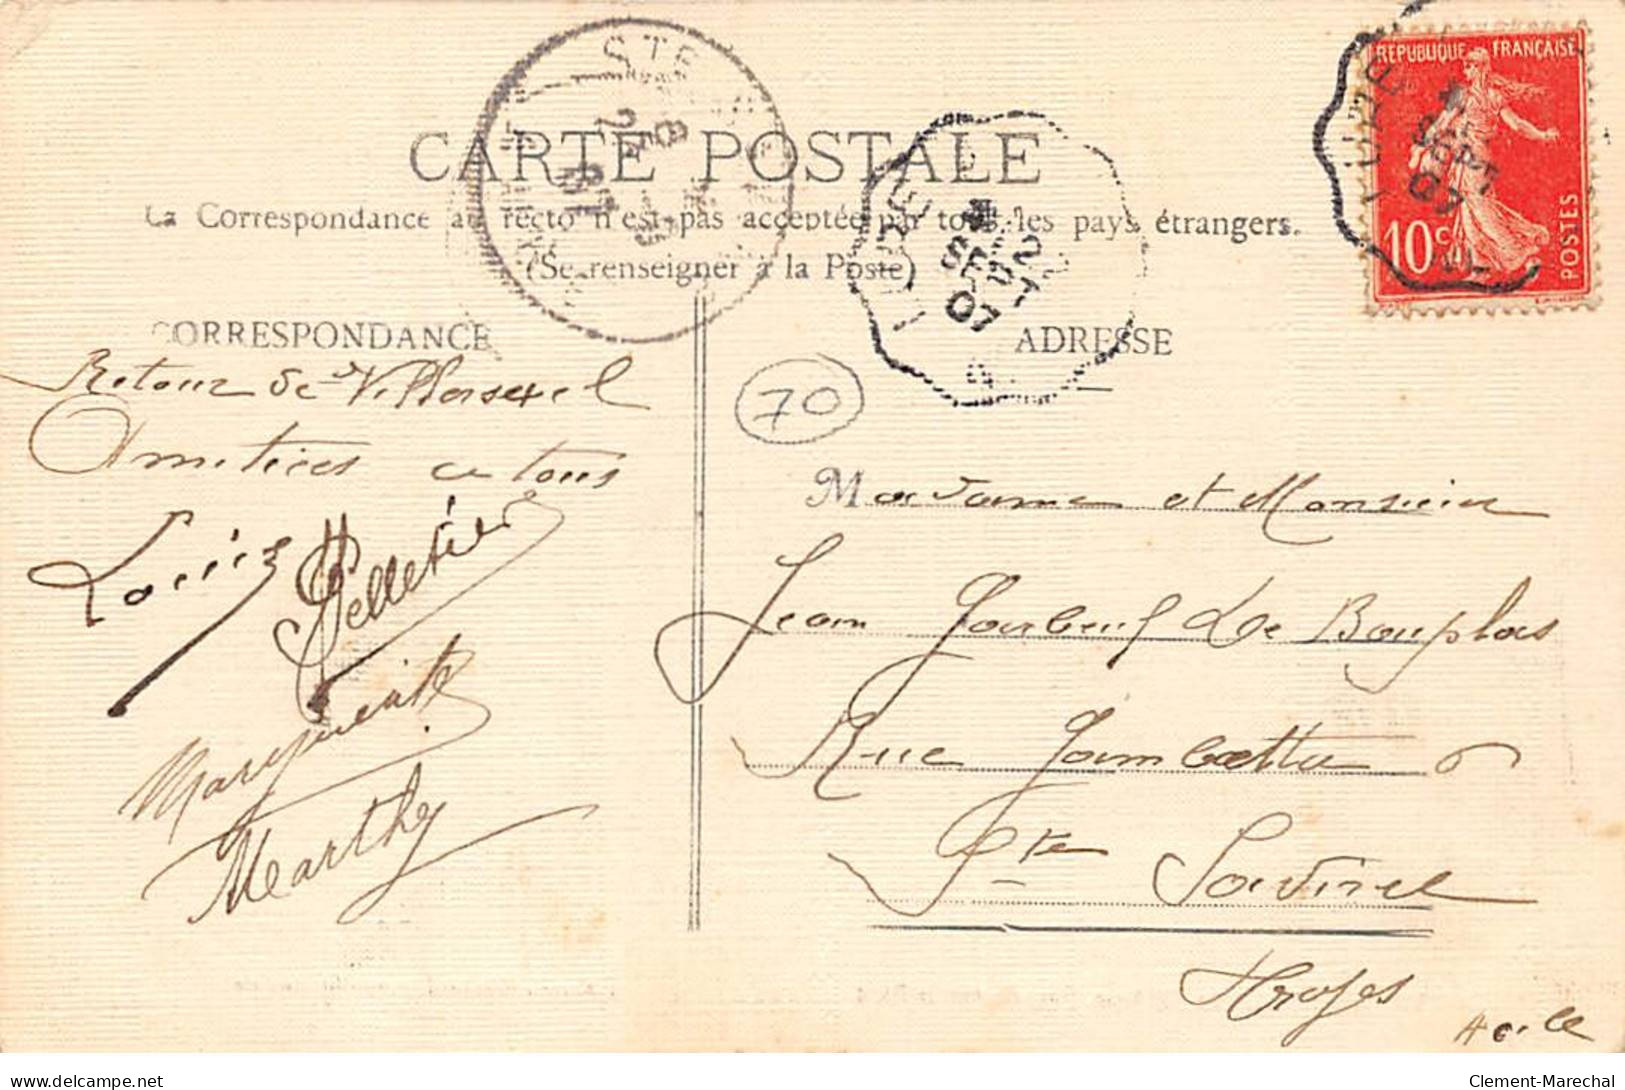 CARTE POSTALE
La Correspondance au recto n'est pas acceptée par tous les pays étrangers.
(Se renseigner à la Poste)
CORRESPONDANCE
ADRESSE
REPUBLIQUE FRANÇAISE
10 c
POSTES
SEPT
07
SEPT
07
STE
70
Retour de Villersexel
Amitiées a tous
Louis Pelletier
Marguerite
Marthe
Madame et Monsieur
Jean Garbeuf Le Bouplas
Rue Gambetta
Ste Savine
Troyes
Clement-Marechal
delcampe.net